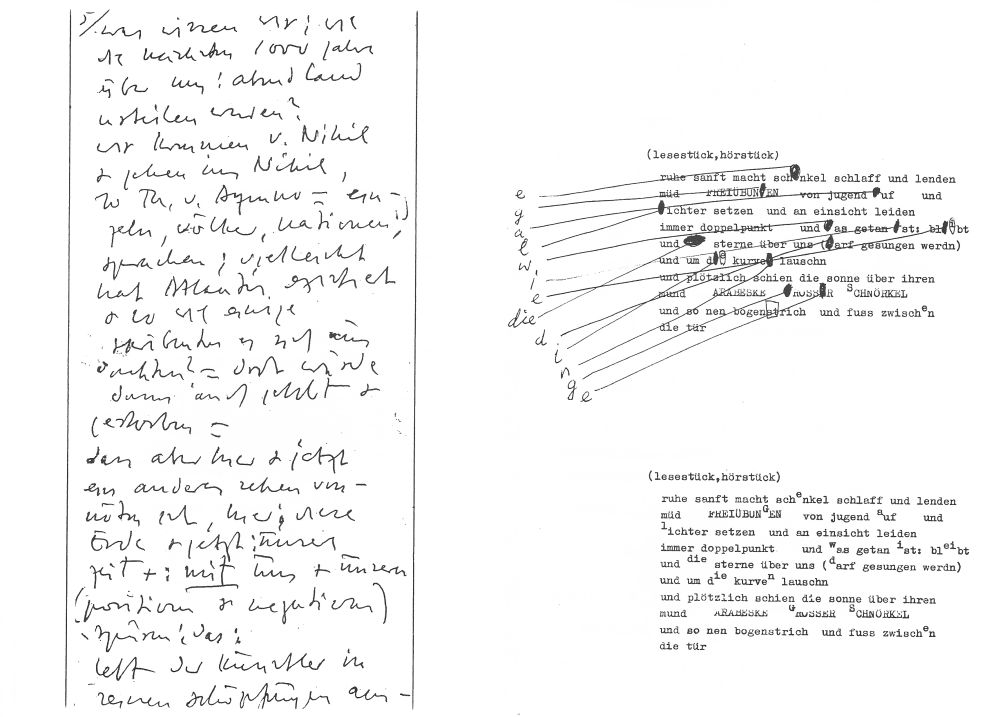 5/was wissen wir, wie
die nächsten 1000 jahre
über uns: abendland
urteilen werden?
wir kommen v. Nihil
& gehen ins Nihil,
zo Th. v. Aquino = ein-
zeln, völker, nationen,
sprachen; vielleicht
hat Atlantis existiert
& es ist einige
=
dann auch gelebt &
gestorben =
dass aber hier & jetzt
ein anderes sehen von-
nöten ist, hier: diese
Erde & jetzt: unsere
zeit + : mit uns + unseren
(positiven & negativen)
spüren: das:
lebt der künstler in
seinen schöpfungen aus-
(lesestück,hörstück)
ruhe sanft macht schenkel schlaff und lenden
müd FREIÜBUNGEN von jugend auf und
lichter setzen und an einsicht leiden
immer doppelpunkt und was getan ist: bleibt
und die sterne über uns (darf gesungen werdn)
und um die kurven lauschn
und plötzlich schien die sonne über ihren
mund ARABESKE GROSSER SCHNÖRKEL
und so nen bogenstrich und fuss zwischen
die tür
e
g
a
l
w
i
e
die
d
i
n
g
e
(lesestück,hörstück)
ruhe sanft macht schenkel schlaff und lenden
müd FREIÜBUNGEN von jugend auf und
lichter setzen und an einsicht leiden
immer doppelpunkt und was getan ist: bleibt
und die sterne über uns (darf gesungen werdn)
und um die kurven lauschn
und plötzlich schien die sonne über ihren
mund ARABESKE GROSSER SCHNÖRKEL
und so nen bogenstrich und fuss zwischen
die tür